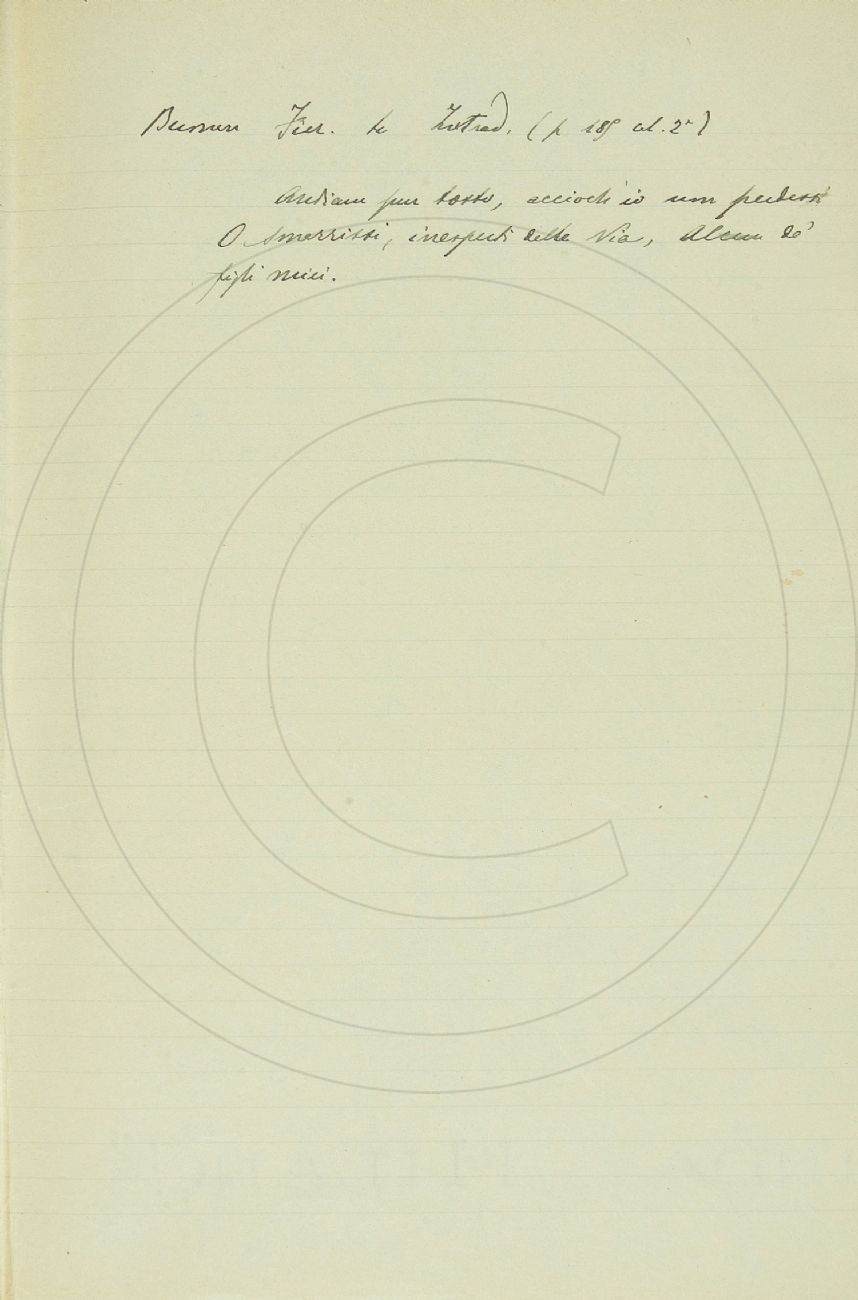 Buonarr Fier. 4. Introd. (p 185 col. 2ª)
Andiam pur tosto, acciocch'io non perdessi
O smarrissi, inesperti delle Via, Alcun de'
figli miei.